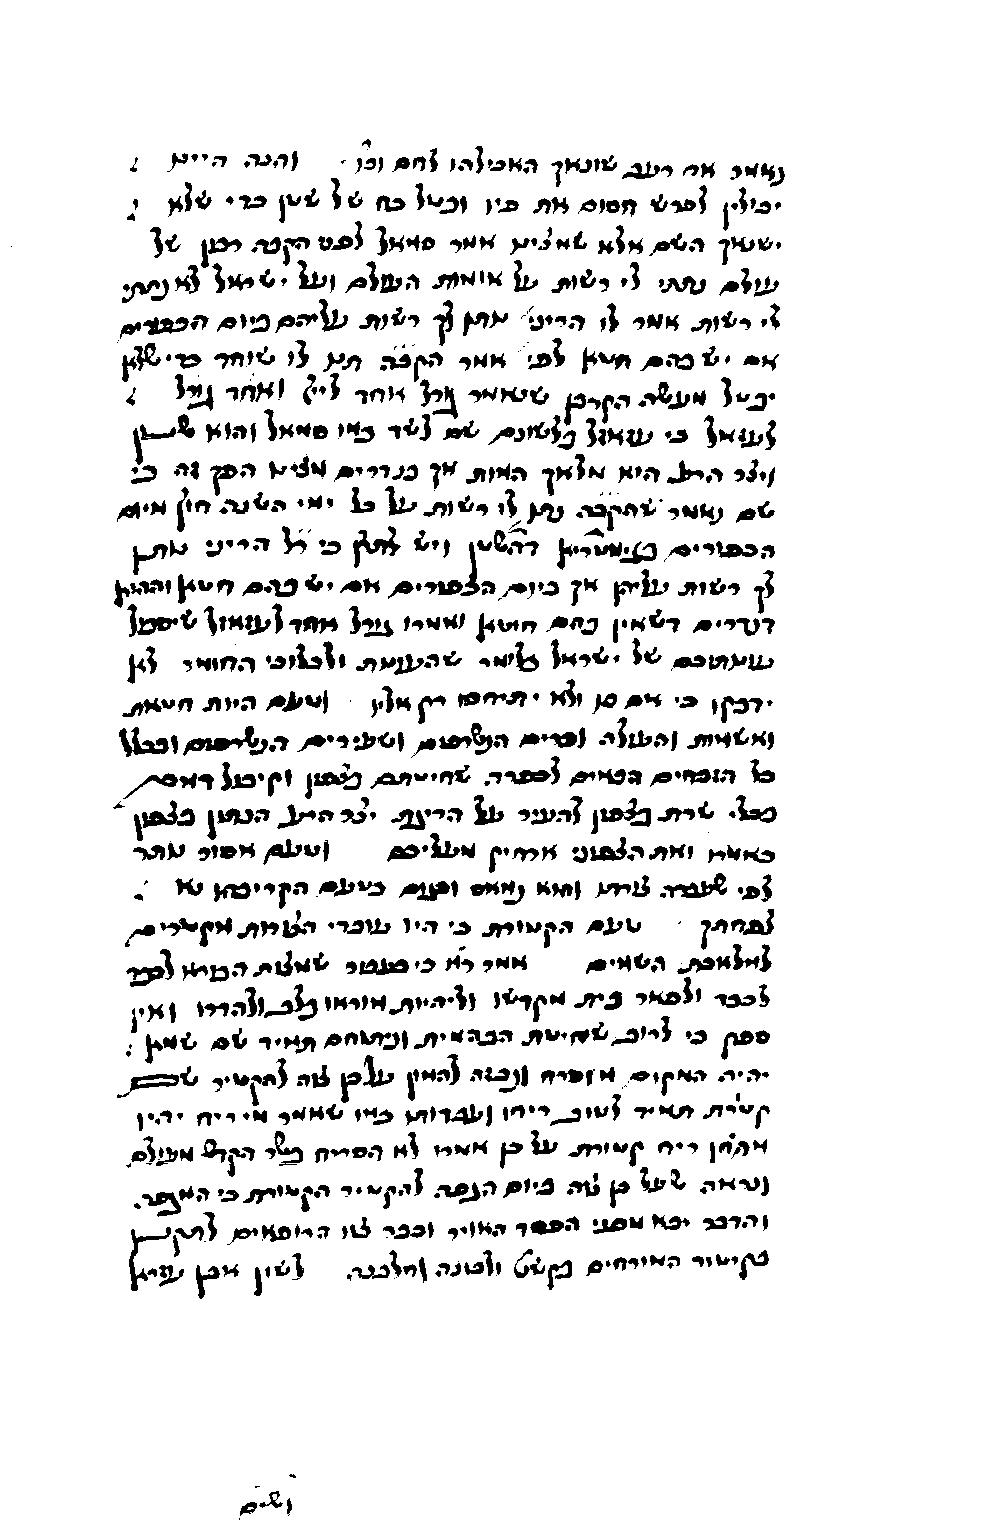 נאמר אם רעב שונאך האכילהו לחם וכו' והנה היינו
יכולין לפרש חסום את פיו ובטל כח של שטן כדי שלא
ישטן השם אלא שמצינו אמר סמאל לפני הקבה רבון של
עולם נתתי לי רשות על אומות העולם ועל ישראל לא נתתי
לי רשות אמר לו הריני נותן לך רשות עליהם ביום הכפורים
אם יש בהם חטא לפי' אמר הקבה תנו לו שוחד כדי שלא
יבטל מעשה הקרבן שנאמר גורל אחד ליי' ואחד גורל
לעזאזל כי עזאזל בלשונם שם לשד כמו סמאל והוא שטן
ויצר הרע הוא מלאך המות אך בנדרים מצינו הפך זה כי
שם נאמר שהקבה נתן לו רשות על כל ימי השנה חוץ מיום
הכפורים בגימטריא דהשטן ויש לתרץ כי כל הריני נותן
לך רשות עליהן אך ביום הכפורים אם יש בהם חטא וההיא
דנדרים דשאין בהם חטא ואמרו גורל אחד לעזאזל שיסבול
עונותיכם של ישראל כלומר שהעונות ולכלוכי החומר לא
ידבקו כי אם מן ולא יתיחסו רק אליו וטעם היות חטאת
ואשמות והעולה ופרים הנשרפים ושעירים הנשרפים ובכלל
כל הזבחים הבאים לכפרה שחיטתם בצפון וקיבול דמם
בכלי שרת בצפון להעיר על הריגת יצר הרע הנתון בצפון
כאמרו ואת הצפוני ארחיק מעליכם וטעם אסור מותר
לפי שעברה והוא נמאס כטעם הקריבהו נא
לפחתך טעם הקטורת כי היו עובדי הצורות מקטרים
למלאכת השמים אמר רא כי בעבור שמצות הבורא
לכבד ולפאר בית מקדשו ולהיות מוראו בלב ולהדרו ואין
ספק כי לרוב שחיטת הבהמות ונתוחם תמיד שם שמא
יהיה המקום מוסרח ונבזה להמון על כן צוה להקטיר שם
קטרת תמיד לטוב ריחו ועבדותו כמו שאמר מי ריח יהיו
מהחן ריח קטורת על כן אמרו לא הסריח בשר הקדש מעולם
ונראה שעל כן צוה ביום הנפה להקטיר הקטורת כי המגפה
והדבר יבא מפני הפסד האויר וכבר צוו הרופאים לתקן
בקיטור המורחים בקשט ולבונה וחלבנה לשון אבן עזרא
ושים